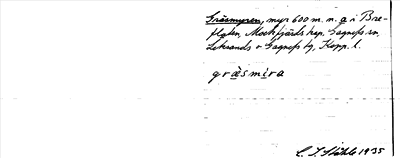 Gräsmyren, myr 600 m. n. a i Bre-
flaten, Mockfjärds kap. Gagnefs sn,
Leksands o Gagnefs tg, Kopp. l.
gräsmira
C. I. Ståhle 1935